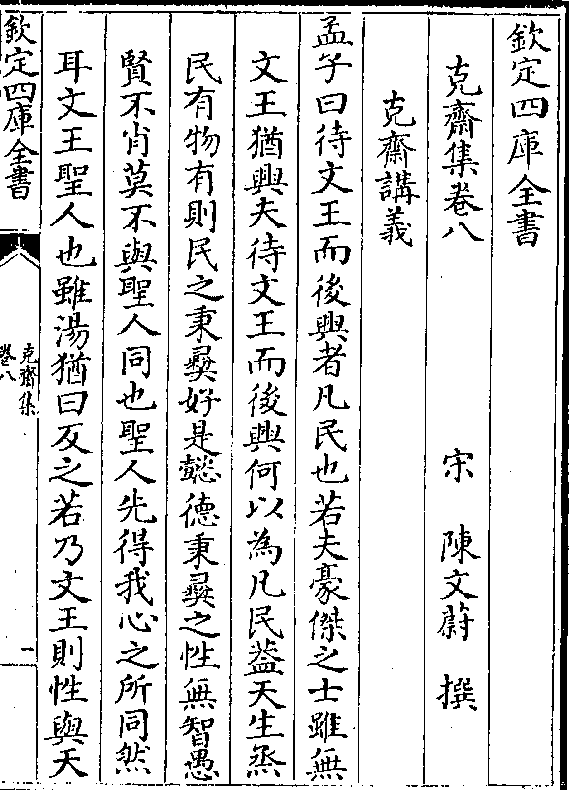 欽定四庫全書
克齋集卷八
宋 陳文蔚 撰
克齋講義
孟子曰待文王而後興者凡民也若夫豪傑之士雖無
文王猶興夫待文王而後興何以為凡民葢天生烝
民有物有則民之秉彞好是懿德秉彞之性無智愚
賢不肖莫不與聖人同也聖人先得我心之所同然
耳文王聖人也雖湯猶曰反之若乃文王則性與天
欽定四庫全書
克齋集
卷八
一